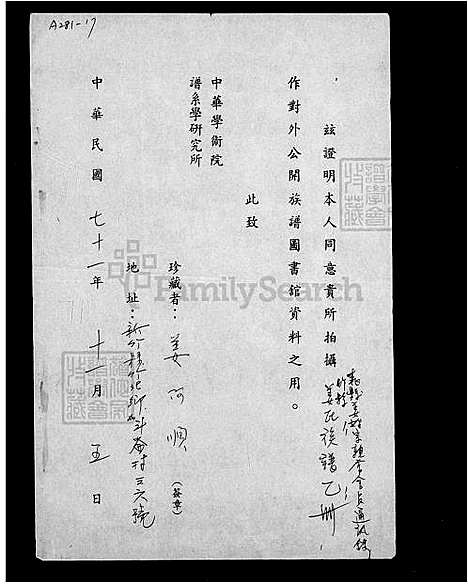 A281-17
茲證明本人同意貴所拍攝
姜氏族譜乙冊
作對外公開族譜圖書館資料之用。
此致
中華學術院
譜系學研究所
珍藏者：姜阿順(簽章)
地址：新竹縣竹北鄉斗崙村三六號
中華民國七十一年十一月五日
FamilySearch